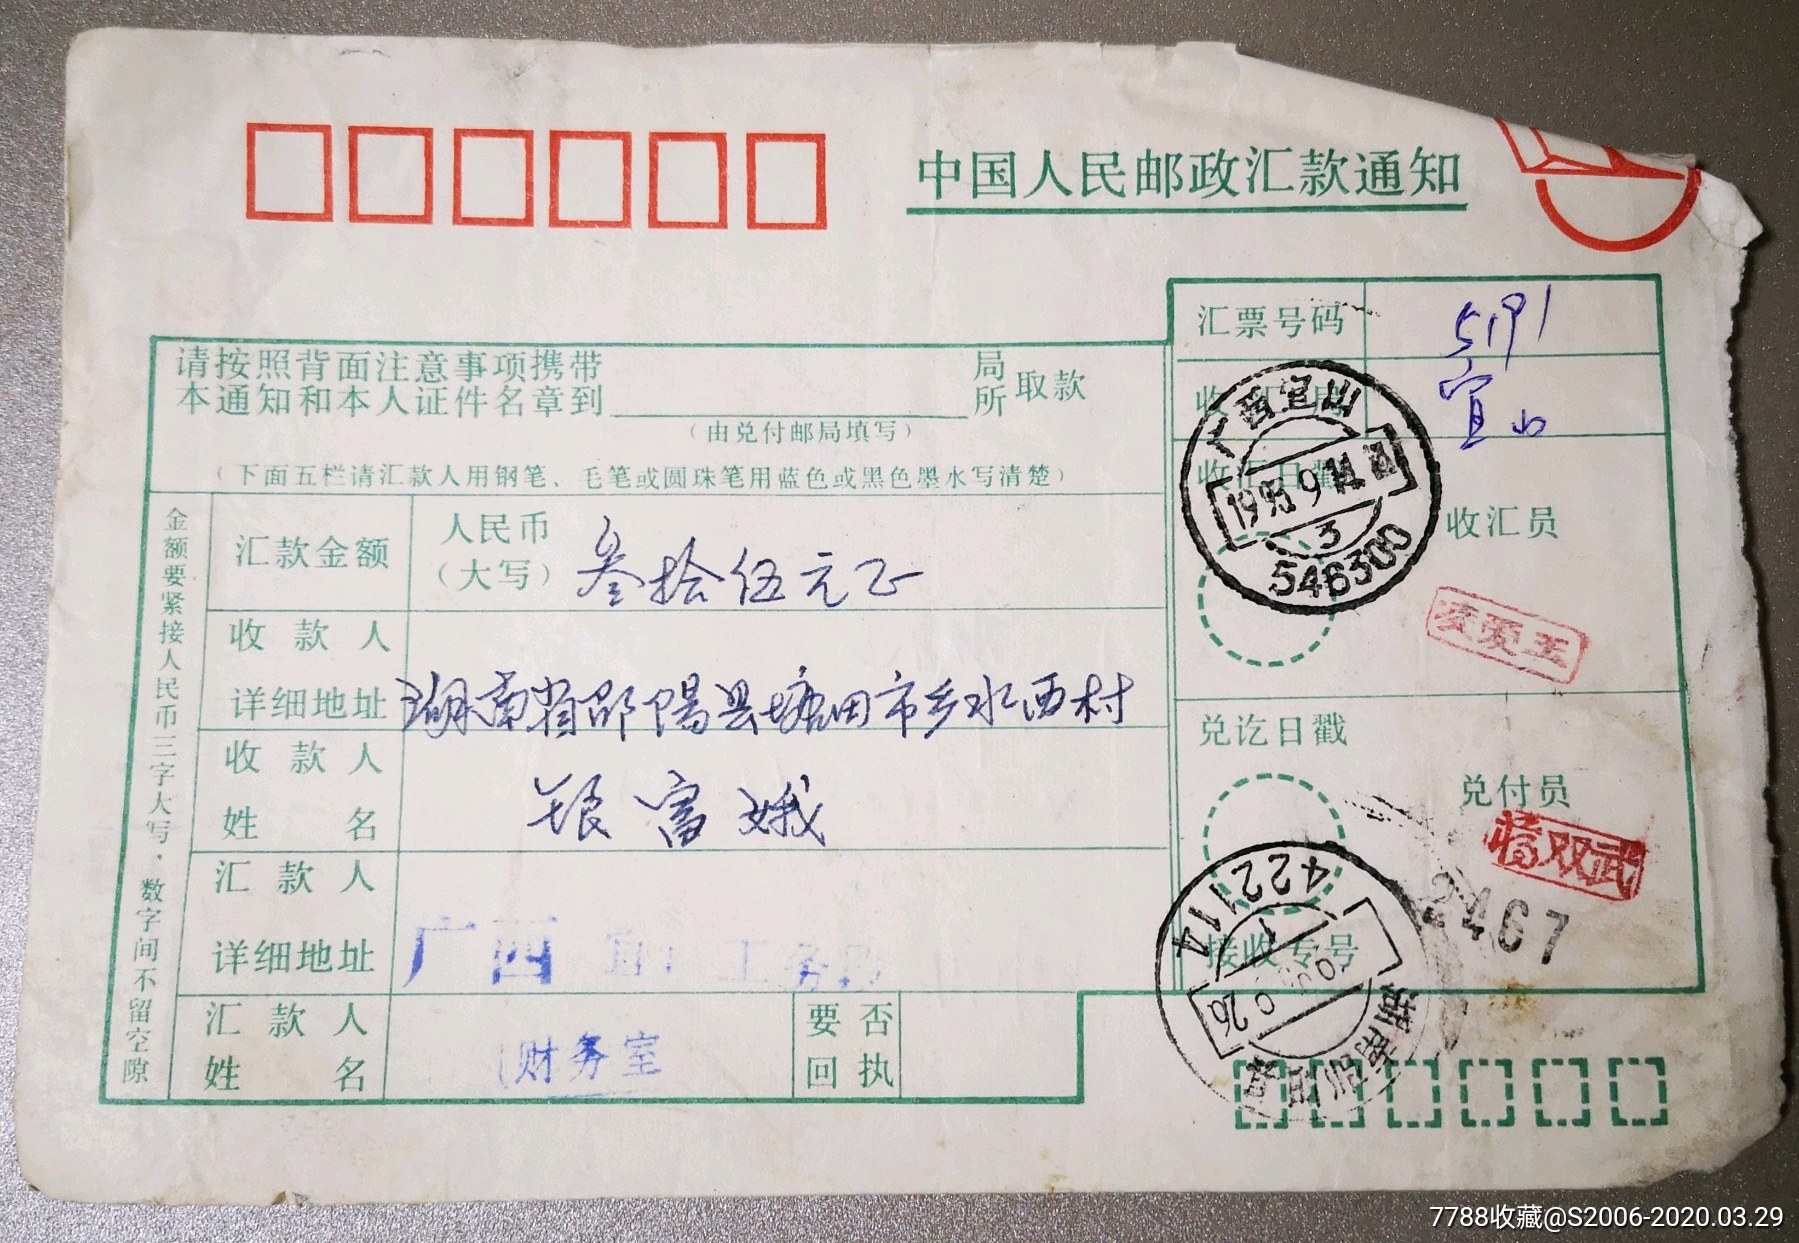 中国人民邮政汇款通知
汇票号码
5191
请按照背面注意事项携带
本通知和本人证件名章到
局
所
取款
(由兑付邮局填写)
宜山
(下面五栏请汇款人用钢笔、毛笔或圆珠笔用蓝色或黑色墨水写清楚)
收汇日戳
广西宜山
1993 9
3
546300
收汇员
金额要紧接人民币三字大写·数字间不留空隙
汇款金额
人民币
(大写)
叁拾伍元正
收款人
详细地址
湖南省邵阳县塘田市乡水西村
收款人
姓名
银富娥
兑讫日戳
兑付员
蒋双武
2467
汇款人
详细地址
广西 宜山工务段
422114
接收专号
汇款人
姓名
财务室
要否
回执
7788收藏@S2006-2020.03.29